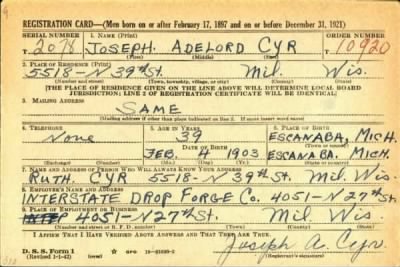 REGISTRATION CARD—(Men born on or after February 17, 1897 and on or before December 31, 1921)
SERIAL NUMBER 1. NAME (Print) ORDER NUMBER
T 2078 JOSEPH ADELORD CYR T 10920
2. PLACE OF RESIDENCE (Print)
5518-N 39th St. Mil. Wis.
(Number and street) (Town, township, village, or city) (County) (State)
[THE PLACE OF RESIDENCE GIVEN ON THE LINE ABOVE WILL DETERMINE LOCAL BOARD
JURISDICTION; LINE 2 OF REGISTRATION CERTIFICATE WILL BE IDENTICAL]
3. MAILING ADDRESS
SAME
[Mailing address if other than place indicated on line 2. If same insert word same]
4. TELEPHONE 5. AGE IN YEARS 6. PLACE OF BIRTH
None 39 ESCANABA, MICH.
DATE OF BIRTH
FEB. 14 1903 ESCANABA, MICH.
(Exchange) (Number) (Mo.) (Day) (Yr.) (State or country)
7. NAME AND ADDRESS OF PERSON WHO WILL ALWAYS KNOW YOUR ADDRESS
RUTH CYR 5518-N 39th St. Mil. Wis.
8. EMPLOYER'S NAME AND ADDRESS
INTERSTATE DROP FORGE CO. 4051-N 27th St.
9. PLACE OF EMPLOYMENT OR BUSINESS
4051-N 27th St. Mil. Wis.
(Number and street or R. F. D. number) (Town) (County) (State)
I AFFIRM THAT I HAVE VERIFIED ABOVE ANSWERS AND THAT THEY ARE TRUE.
D. S. S. Form 1
(Revised 1-1-42) (over) 16—21630-2
Joseph A. Cyr
(Registrant's signature)